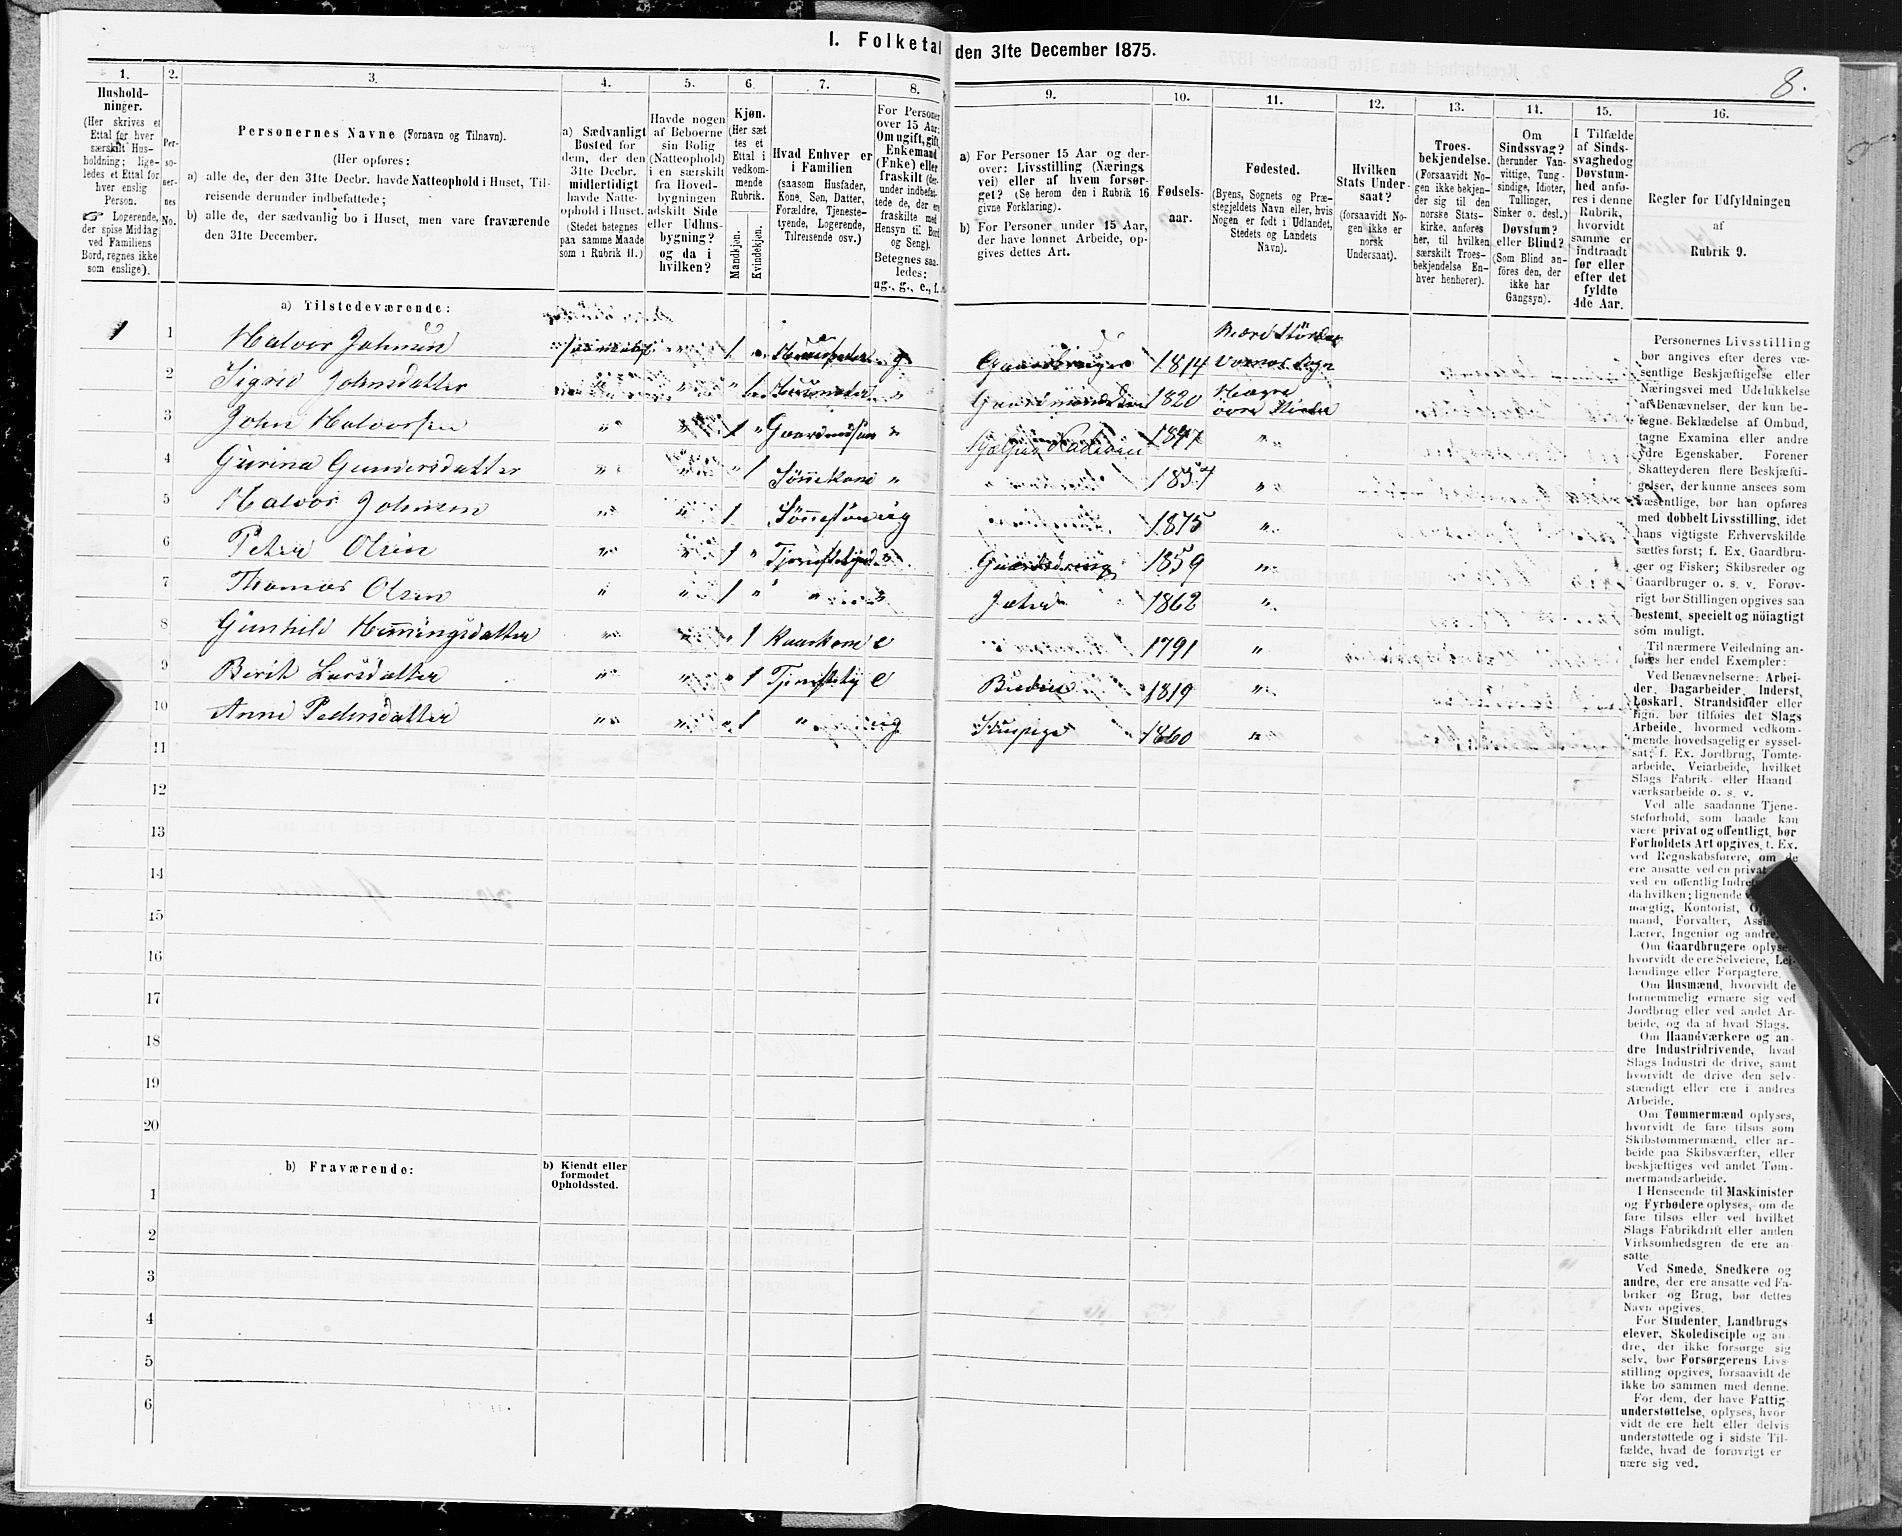 I. Folketal den 31te December 1875.
8.
1.
Hushold-
ninger.
(Her skrives et
Ettal for hver
særskilt Hus-
holdning; lige-
ledes et Ettal for
hver enslig
Person.
☞ Logerende,
der spise Middag
ved Familiens
Bord, regnes ikke
som enslige).
2.
Per-
so-
ner-
nes
No.
3.
Personernes Navne (Fornavn og Tilnavn).
(Her opføres:
a) alle de, der den 31te Decbr. havde Natteophold i Huset, Til-
reisende derunder indbefattede;
b) alle de, der sædvanlig bo i Huset, men vare fraværende
den 31te December.
4.
a) Sædvanligt
Bosted for
dem, der den
31te Decbr.
midlertidigt
havde Natte-
ophold i Huset.
(Stedet betegnes
paa samme Maade
som i Rubrik 11.)
5.
Havde nogen
af Beboerne
sin Bolig
(Natteophold)
i en særskilt
fra Hoved-
bygningen
adskilt Side
eller Udhus-
bygning?
og da i
hvilken?
6.
Kjøn.
(Her sæt
tes et
Ettal i
vedkom-
mende
Rubrik.
Mandkjøn.
Kvindekjøn.
7.
Hvad Enhver er
i Familien
(saasom Husfader,
Kone, Søn, Datter,
Forældre, Tjeneste-
tyende, Logerende,
Tilreisende osv.)
8.
For Personer
over 15 Aar:
Om ugift, gift,
Enkemand
(Enke) eller
fraskilt (der-
under indbefat-
tede de, der ere
fraskilte med
Hensyn til Bord
og Seng).
Betegnes saa-
ledes:
ug., g., e., f.
9.
a) For Personer 15 Aar og der-
over: Livsstilling (Nærings
vei) eller af hvem forsør-
get? (Se herom den i Rubrik 16
givne Forklaring).
b) For Personer under 15 Aar,
der have lønnet Arbeide, op-
gives dettes Art.
10.
Fødsels-
aar.
11.
Fødested.
(Byens, Sognets og Præ-
stegjeldets Navn eller, hvis
Nogen er født i Udlandet,
Stedets og Landets
Navn).
12.
Hvilken
Stats Under-
saat?
(forsaavidt No-
gen ikke er
norsk
Undersaat).
13.
Troes-
bekjendelse.
(Forsaavidt No-
gen ikke bekjen-
der sig til den
norske Stats-
kirke, anføres
her, til hvilken
særskilt Troes-
bekjendelse En-
hver henhører).
14.
Om
Sindssvag?
(herunder Van-
vittige, Tung-
sindige, Idioter,
Tullinger,
Sinker o. desl.)
Døvstum?
eller Blind?
(Som Blind an-
føres den, der
ikke har
Gangsyn).
15.
I Tilfælde
af Sinds-
svaghed og
Døvstum-
hed anfø-
res i denne
Rubrik,
hvorvidt
samme er
indtraadt
før eller
efter det
fyldte
4de Aar.
16.
Regler for Udfyldningen
af
Rubrik 9.
a) Tilstedeværende:
1 1 Halvor Johnsen 1 " Huusfader g Gaardbruger 1814
2 Sigrid Johnsdatter " 1 Huusmoder " 1820
3 John Halvorsen " " 1 " Gaardmdsøn " 1847 "
4 Gurina Gundersdatter " " " 1 Sønnekone " " 1854 "
5 Halvor Johnsen " " 1 Sønnesøn ug 1875 "
6 Peter Olsen " " 1 " " 1859 "
7 Thomas Olsen " " 1 " " " 1862 "
8 Gunhild Hemmingsdatter " " " 1 Kaarkone e 1791 "
9 Berit Larsdatter " " " 1 e Budeie 1819 "
10 Anne Pedersdatter " " " 1 " ug 1860 "
11
12
13
14
15
16
17
18
19
20
b) Fraværende:
b) Kjendt eller
formodet
Opholdssted.
1
2
3
4
5
6
Personernes Livsstilling
bør angives efter deres væ-
sentlige Beskjæftigelse eller
Næringsvei med Udelukkelse
af Benævnelser, der kun be-
tegne Beklædelse af Ombud,
tagne Examina eller andre
ydre Egenskaber. Forener
Skatteyderen flere Beskjæfti-
gelser, der kunne ansees som
væsentlige, bør han opføres
med dobbelt Livsstilling, idet
hans vigtigste Erhvervskilde
sættes først; f. Ex. Gaardbru-
ger og Fisker; Skibsreder og
Gaardbruger o. s. v. Forøv-
rigt bør Stillingen opgives saa
bestemt, specielt og nöiagtigt
som muligt.
Til nærmere Veiledning an-
føres her endel Exempler:
Ved Benævnelserne: Arbei-
der, Dagarbeider, Inderst,
Løskarl, Strandsidder eller
lign. bør tilføies det Slags
Arbeide, hvormed vedkom-
mende hovedsagelig er syssel-
sat; f. Ex. Jordbrug, Tømte-
arbeide, Veiarbeide, hvilket
Slags Fabrik- eller Haand
værksarbeide o. s. v.
Ved alle saadanne Tjene-
steforhold, som baade kan
være privat og offentligt, bør
Forholdets Art opgives, f. Ex.
ved Regnskabsførere, om de
ere ansatte ved en privat
ved en offentlig Indret
da hvilken; lignende
mægtig, Kontorist,
mand, Forvalter,
Lærer, Ingeniør og andre.
Om Gaardbrugere oplyses,
hvorvidt de ere Selveiere, Lei-
lændinge eller Forpagtere.
Om Husmænd, hvorvidt de
fornemmelig ernære sig ved
Jordbrug eller ved andet Ar-
beide, og da af hvad Slags.
Om Haandværkere og an-
dre Industridrivende, hvad
Slags Industri de drive, samt
hvorvidt de drive den selv-
stændigt eller ere i andres
Arbeide.
Om Tømmermænd oplyses,
hvorvidt de fare tilsøs som
Skibstømmermænd, eller ar-
beide paa Skibsværfter, eller
beskjæftiges ved andet Tøm-
mermandsarbeide.
I Henseende til Maskinister
og Fyrbødere oplyses, om de
fare tilsøs eller ved hvilket
Slags Fabrikdrift eller anden
Virksomhedsgren de ere an-
satte.
Ved Smede, Snedkere og
andre, der ere ansatte ved Fa-
briker og Brug, bør dettes
Navn opgives.
For Studenter, Landbrugs-
elever, Skoledisciple og an-
dre, der ikke forsørge sig
selv, bør Forsørgerens Livs-
stilling opgives, forsaavidt de
ikke bo sammen med denne.
For dem, der have Fattig-
understøttelse, oplyses, hvor
vidt de ere helt eller delvis
understøttede og i sidste Til-
fælde, hvad de forøvrigt er
nære sig ved.